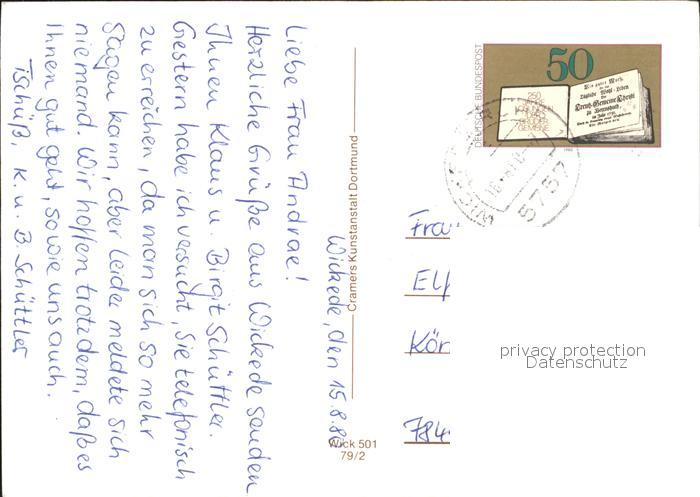 Wickede, den 15.8.80
Liebe Frau Andrae!
Herzliche Grüße aus Wickede senden
Ihnen Klaus u. Birgit Schüttler.
Gestern habe ich versucht, Sie telefonisch
zu erreichen, da man sich so mehr
sagen kann, aber leider meldete sich
niemand. Wir hoffen trotzdem, daß es
Ihnen gut geht, sowie uns auch.
Tschüß, K. u. B. Schüttler
Cramers Kunstanstalt Dortmund
Wick 501
79/2
DEUTSCHE BUNDESPOST
50
250
LOSUNGEN
BRÜDER-
GEMEINE
1980
5757
Frau
Elf
Kör
784
privacy protection
Datenschutz